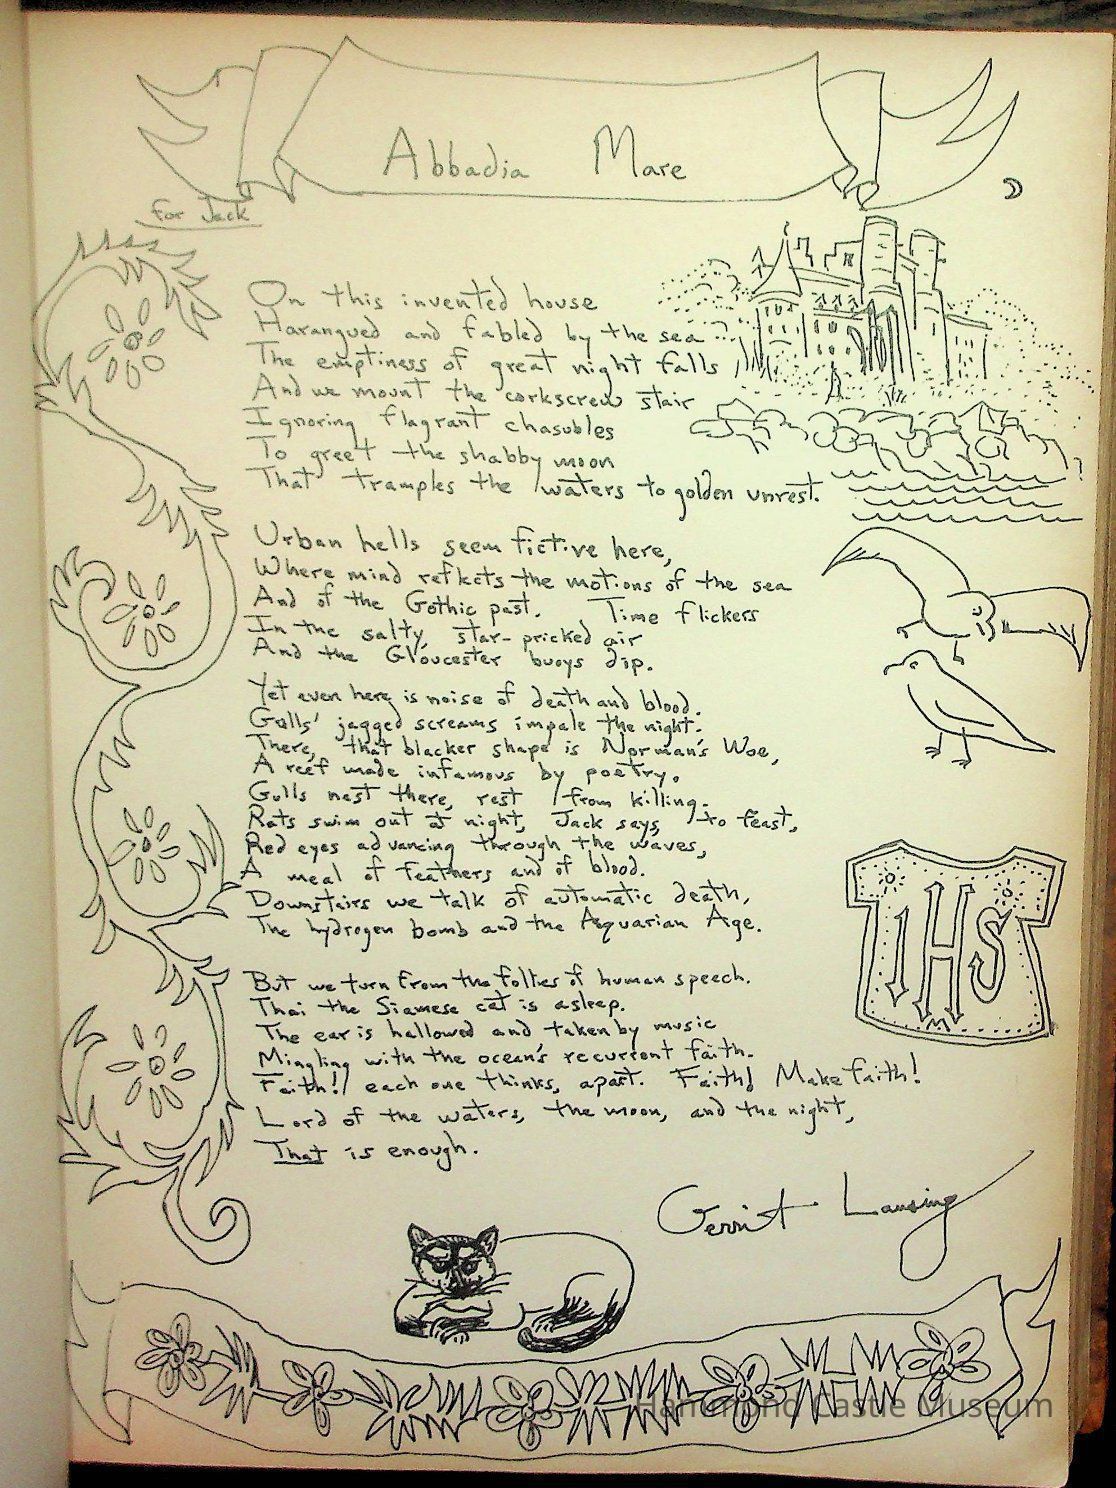 Abbadia Mare
For Jack
On this invented house
Harangued and fabled by the sea
The emptiness of great night falls
And we mount the corkscrew stair
Ignoring flagrant chasubles
To greet the shabby moon
That tramples the waters to golden unrest.
Urban hells seem fictive here,
Where mind reflects the motions of the sea
And of the Gothic past. Time flickers
In the salty, star-pricked air
And the Gloucester buoys dip.
Yet even here is noise of death and blood.
Gulls' jagged screams impale the night.
There, that blacker shape is Norman's Woe,
A reef made infamous by poetry.
Gulls nest there, rest from killing.
Rats swim out at night, Jack says, to feast,
Red eyes advancing through the waves,
A meal of feathers and of blood.
Downstairs we talk of automatic death,
The hydrogen bomb and the Aquarian Age.
But we turn from the follies of human speech.
Thai the Siamese cat is asleep.
The ear is hallowed and taken by music
Mingling with the ocean's recurrent faith.
Faith! each one thinks, apart. Faith! Make faith!
Lord of the waters, the moon, and the night,
That is enough.
Gerrit Lansing
IHS
Hammond Castle Museum